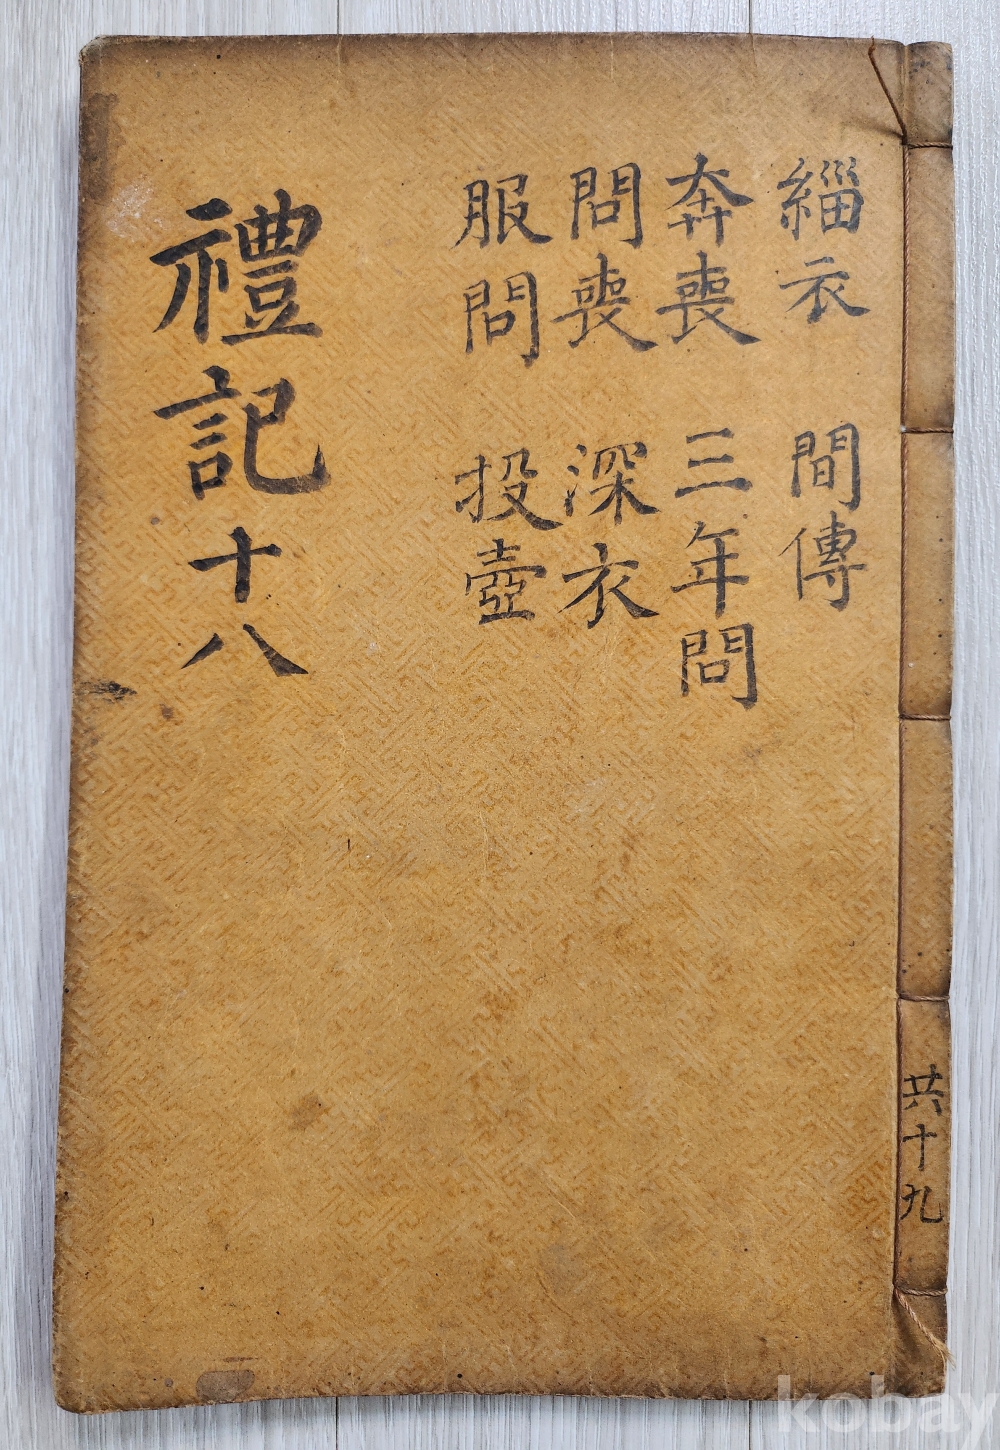 緇衣 間傳
奔喪 三年問
問喪 深衣
服問 投壺
禮記十八
共十九
kobay